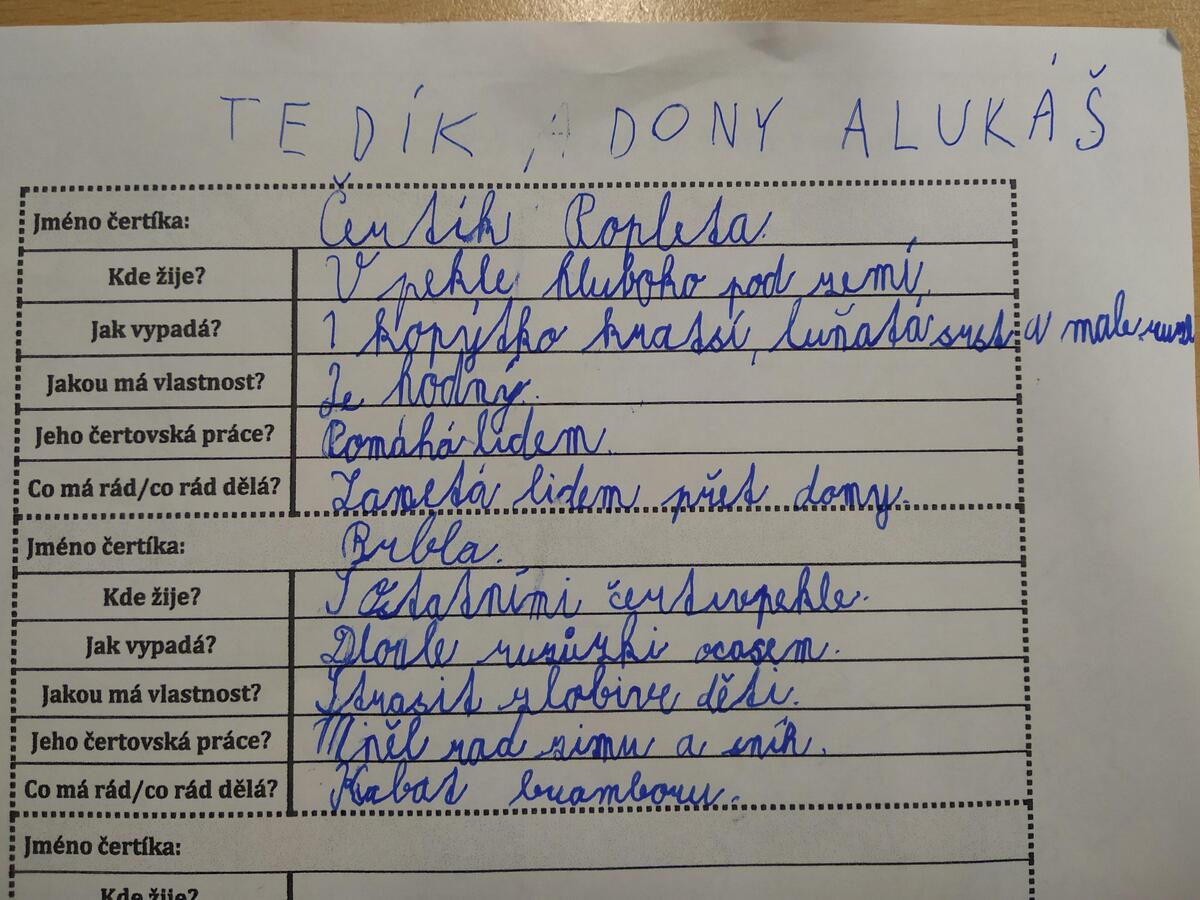 TEDÍK A DONY A LUKÁŠ
Jméno čertíka: Čertík Popleta.
Kde žije? V pekle hluboko pod zemí.
Jak vypadá? 1 kopýtko kratsí, luňatá srst a male
Jakou má vlastnost? Je hodný.
Jeho čertovská práce? Pomáhá lidem.
Co má rád/co rád dělá? Zametá lidem přet domy.
Jméno čertíka: Brbla.
Kde žije? S ostatními čerti v pekle.
Jak vypadá? ocasem.
Jakou má vlastnost? Strasit zlobive děti.
Jeho čertovská práce? Mněl rad zimu a sníh.
Co má rád/co rád dělá? bramboru.
Jméno čertíka:
Kde žije?